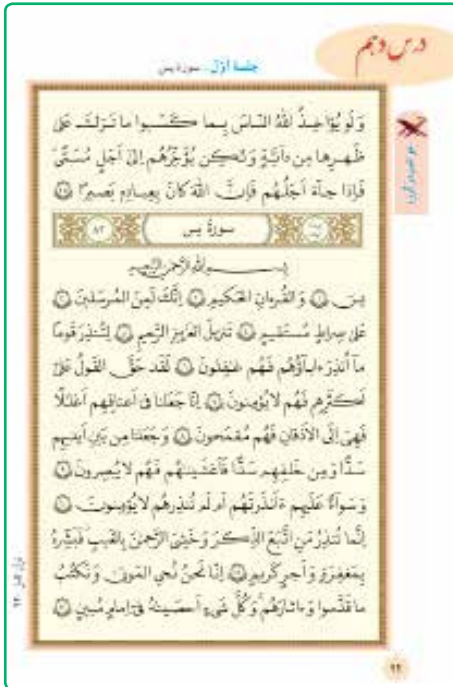 درس دهم
جلسهٔ اوّل ـ سورهٔ یس
وَلَو يُؤاخِذُ اللهُ النّاسَ بِما كَسَبوا ما تَرَكَ عَلىٰ
ظَهرِها مِن دآبَّةٍ وَلٰكِن يُؤَخِّرُهُم إِلىٰ أَجَلٍ مُسَمًّى
فَإِذا جآءَ أَجَلُهُم فَإِنَّ اللهَ كانَ بِعِبادِهِ بَصيرًا
سورة يس
۸۳
بِسمِ اللهِ الرَّحمٰنِ الرَّحيمِ
يس ۱ وَالقُرءانِ الحَكيمِ ۲ إِنَّكَ لَمِنَ المُرسَلينَ ۳
عَلىٰ صِراطٍ مُستَقيمٍ ۴ تَنزيلَ العَزيزِ الرَّحيمِ ۵ لِتُنذِرَ قَومًا
مآ أُنذِرَ ءابآؤُهُم فَهُم غٰفِلونَ ۶ لَقَد حَقَّ القَولُ عَلىٰ
أَكثَرِهِم فَهُم لا يُؤمِنونَ ۷ إِنّا جَعَلنا فى أَعناقِهِم أَغلٰلًا
فَهِىَ إِلَى الأَذقانِ فَهُم مُقمَحونَ ۸ وَجَعَلنا مِن بَينِ أَيديهِم
سَدًّا وَمِن خَلفِهِم سَدًّا فَأَغشَينٰهُم فَهُم لا يُبصِرونَ ۹
وَسَوآءٌ عَلَيهِم ءَأَنذَرتَهُم أَم لَم تُنذِرهُم لا يُؤمِنونَ ۱۰
إِنَّما تُنذِرُ مَنِ اتَّبَعَ الذِّكرَ وَخَشِىَ الرَّحمٰنَ بِالغَيبِ فَبَشِّرهُ
بِمَغفِرَةٍ وَأَجرٍ كَريمٍ ۱۱ إِنّا نَحنُ نُحىِ المَوتىٰ وَنَكتُبُ
ما قَدَّموا وَءاثارَهُم وَكُلَّ شَىءٍ أَحصَينٰهُ فى إِمامٍ مُبينٍ ۱۲